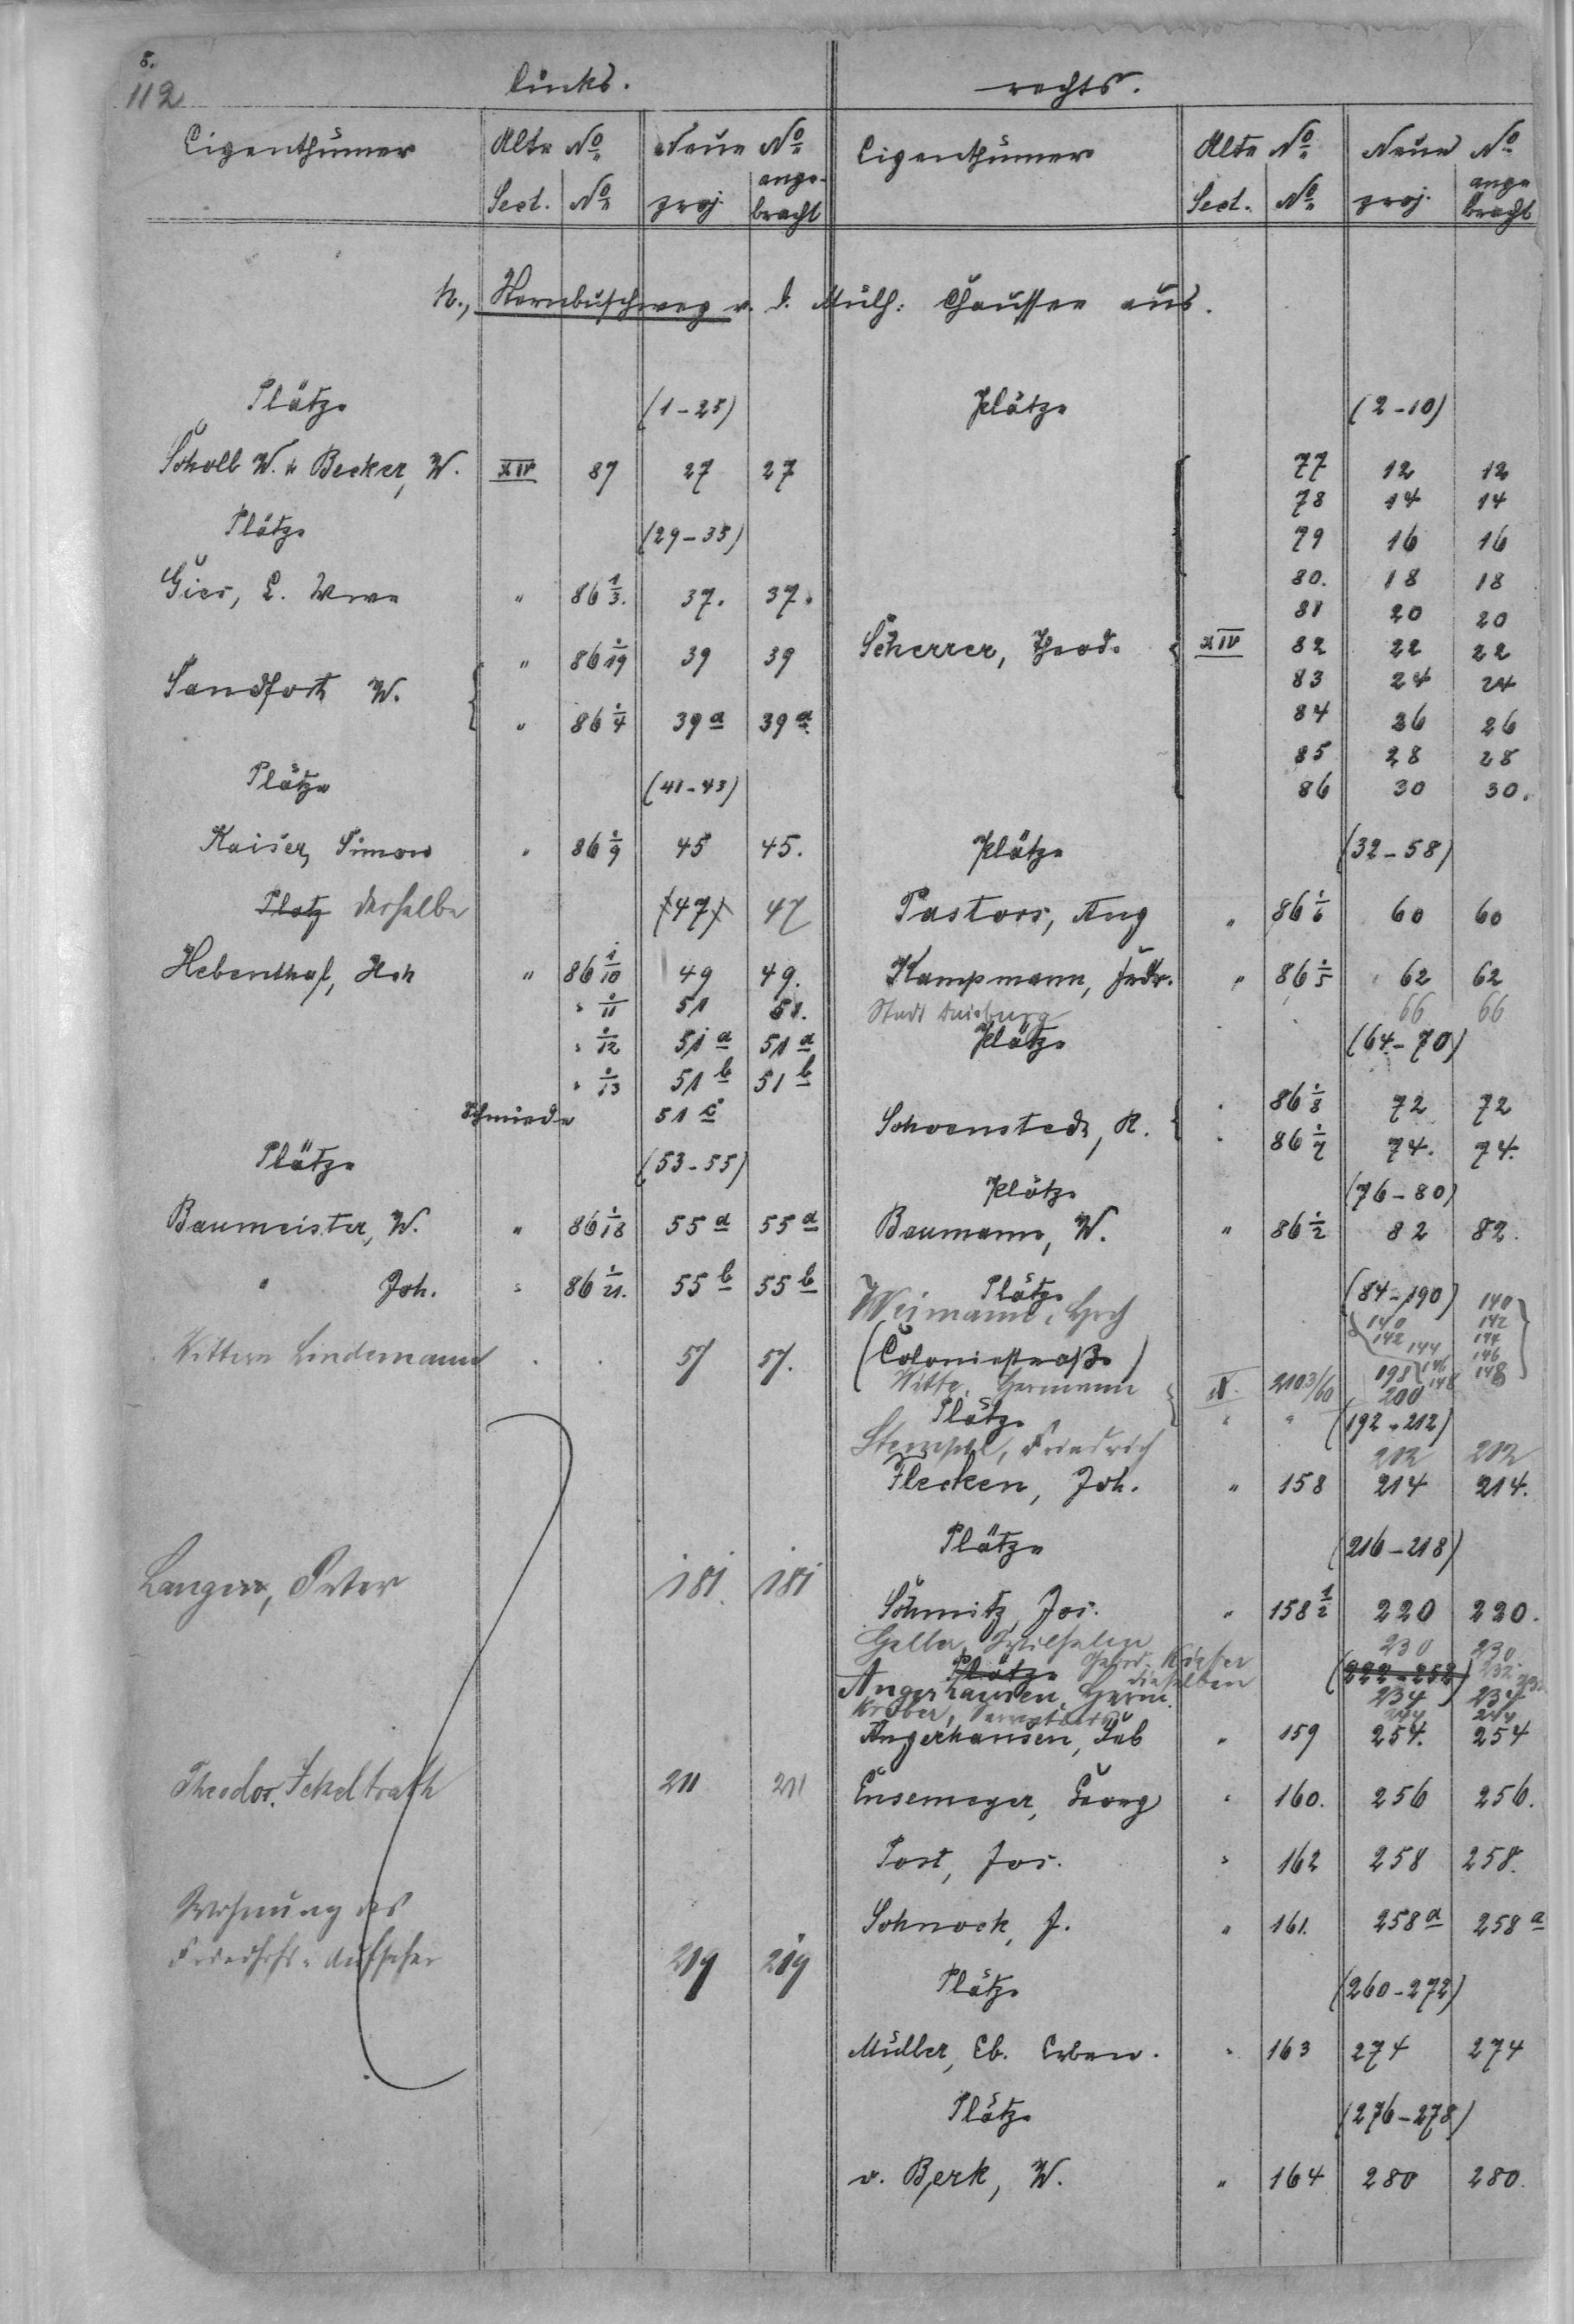 8.
112
links. rechts.
Eigenthümer Alte No Neue No Eigenthümer Alte No Neue No
Sect. No proj. ange-bracht Sect. No proj. ange bracht
h., Sternbuschweg v. d. Mülh: Chaussee aus.
Plätze (1-25) Plätze (2-10)
Scholl W. & Becker, W. XIV 87 27 27 77 12 12
78 14 14
Plätze (29-35) 79 16 16
Gies, L. Wwe " 86 1/3. 37. 37. 80. 18 18
81 20 20
" 86 1/19 39 39 Scherrer, Theod. XIV 82 22 22
Sandfort W. 83 24 24
" 86 1/4 39a 39a 84 26 26
85 28 28
Plätze (41-43) 86 30 30.
Kaiser, Simon " 86 1/9 45 45. Plätze (32-58)
Platz derselbe (47) 47 Pastors, Aug " 86 1/6 60 60
Hebenthal, Hch " 86 1/10 49 49. Kampmann, Fedr. " 86 1/5 62 62
" 1/11 51 51. Stadt Duisburg 66 66
" 1/12 51a 51a Plätze (64-70)
" 1/13 51b 51b
Schmiede 51c 86 1/8 72 72
Schoenstedt, R. 86 1/7 74. 74.
Plätze (53-55) Plätze (76-80)
Baumeister, W. " 86 1/18 55a 55a Baumann, W. " 86 1/2 82 82.
" Joh. " 86 1/21. 55b 55b Plätze (84-190) 140
Weimann, Hch 140 142
142 144 144
Lindemann 57 57. (Coloniestraße) 146 146
Witte, Hermann IX. 2103/60 198 148 148
200
Plätze " " (192-212)
Stempel, Friedrich 212 212
Flecken, Joh. " 158 214 214.
Plätze (216-218)
Langen, Peter 181 181
Schmitz, Jos. " 158 1/2 220 220.
Wilhelm 230 230.
Plätze dieselben (222-252) 232
Angerhausen, Herm. 234 234
244 244
Angerhausen, Jab " 159 254. 254
Theodor Ickeltrath 211 211 Ensemeyer, Georg " 160. 256 256.
Post, Jos. " 162 258 258.
Wohnung des Schnock, J. " 161. 258a 258a
Friedhofs-Aufseher 219 219
Plätze (260-272)
Müller, Eb. Erben. " 163 274 274
Plätze (276-278)
v. Berk, W. " 164 280 280.